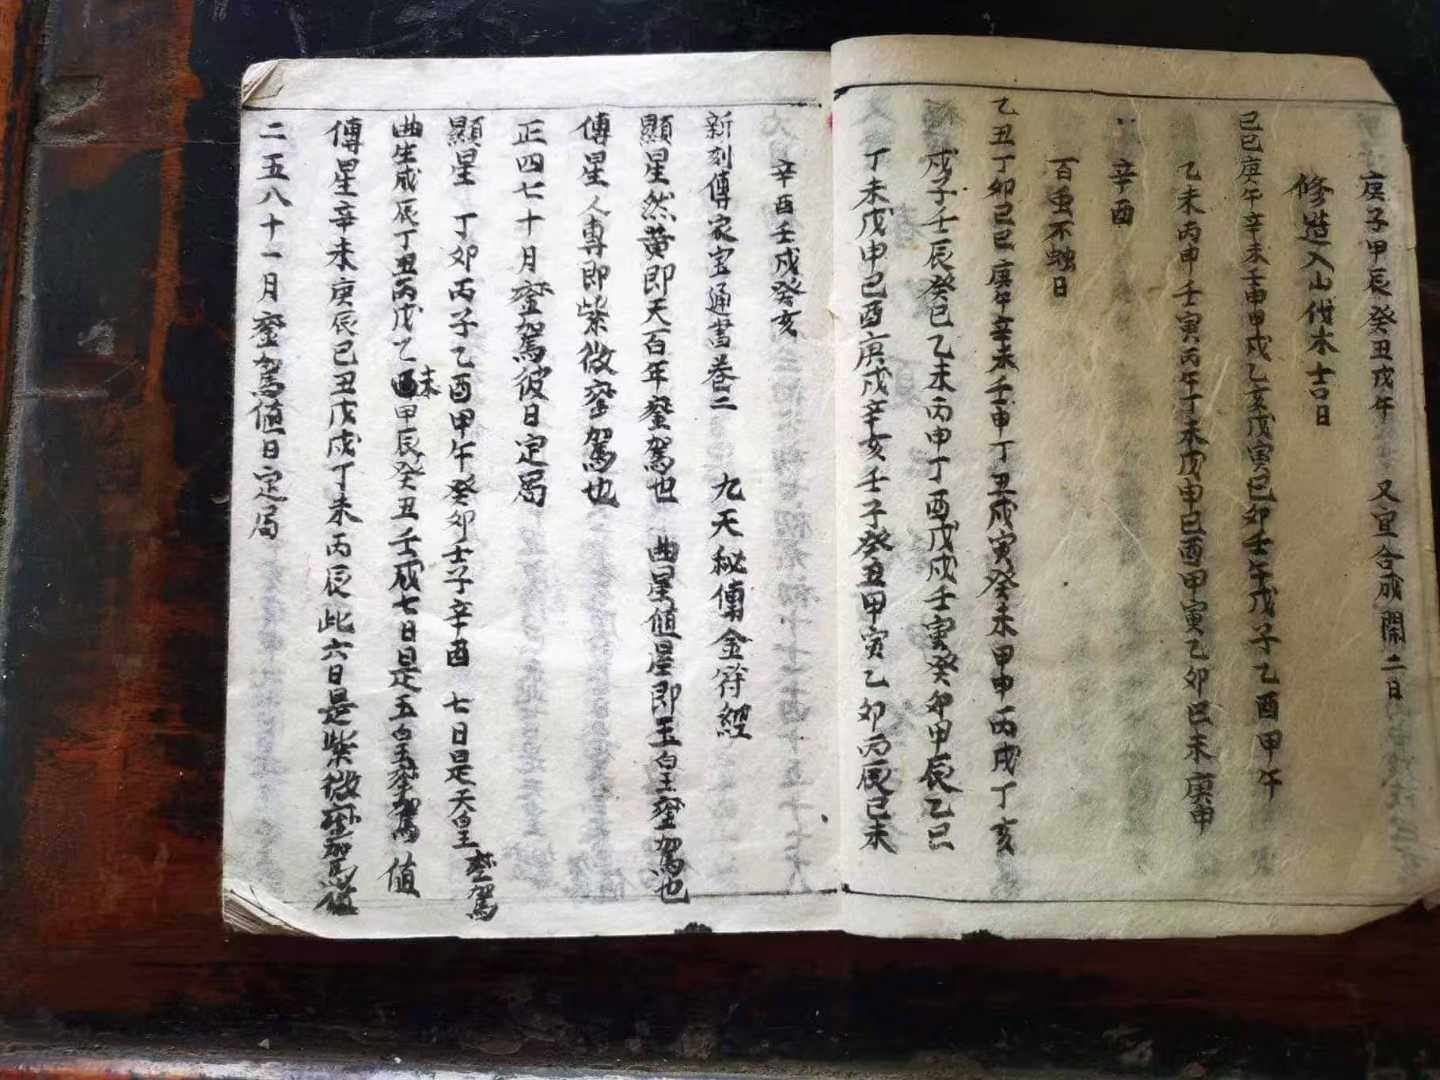 庚子甲辰癸丑戊午 又宜合成開二日
修造入山伐木吉日
己巳庚午辛未壬申甲戌乙亥戊寅己卯壬午戊子乙酉甲午
乙未丙申壬寅丙午丁未戊申己酉甲寅乙卯己未庚申
辛酉
百虫不蛀日
乙丑丁卯己巳庚午辛未壬申丁丑戊寅癸未甲申丙戌丁亥
戊子壬辰癸巳乙未丙申丁酉戊戌壬寅癸卯甲辰乙巳
丁未戊申己酉庚戌辛亥壬子癸丑甲寅乙卯丙辰己未
辛酉壬戌癸亥
新刻傳家宝通書巻二 九天秘傳金符經
顯星然黄即天百年鑾駕也 曲星值星即玉皇鑾駕也
傅星人專即紫微鑾駕也
正四七十月鑾駕彼日定局
顯星 丁卯丙子乙酉甲午癸卯壬子辛酉 七日是天皇鑾駕
曲生咸辰丁丑丙戊乙未甲辰癸丑壬戌七日是玉皇鑾駕值
傅星辛未庚辰己丑戊戌丁未丙辰此六日是紫微鑾駕值
二五八十一月鑾駕值日定局